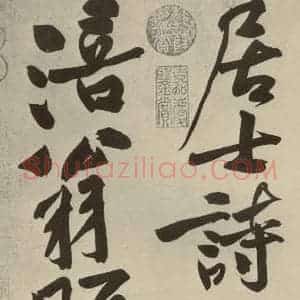 居士詩
涪翁
Shufaziliao.COM